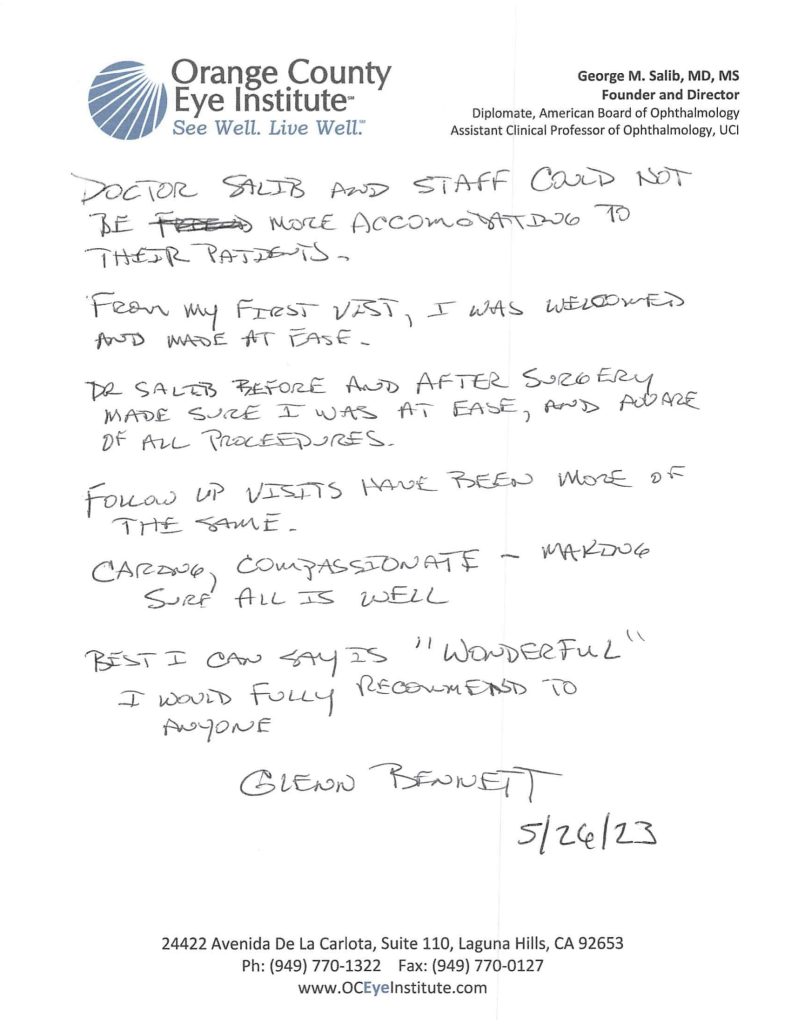 Orange County
Eye Institute℠
See Well. Live Well.℠
George M. Salib, MD, MS
Founder and Director
Diplomate, American Board of Ophthalmology
Assistant Clinical Professor of Ophthalmology, UCI
DOCTOR SALIB AND STAFF COULD NOT
BE MORE ACCOMODATING TO
THEIR PATIENTS.
FROM MY FIRST VIST, I WAS WELCOMED
AND MADE AT EASE.
DR SALIB BEFORE AND AFTER SURGERY
MADE SURE I WAS AT EASE, AND AWARE
OF ALL PROCEEDURES.
FOLLOW UP VISITS HAVE BEEN MORE OF
THE SAME.
CARING, COMPASSIONATE - MAKING
SURE ALL IS WELL
BEST I CAN SAY IS "WONDERFUL"
I WOULD FULLY RECOMMEND TO
ANYONE
GLENN BENNETT
5/26/23
24422 Avenida De La Carlota, Suite 110, Laguna Hills, CA 92653
Ph: (949) 770-1322 Fax: (949) 770-0127
www.OCEyeInstitute.com